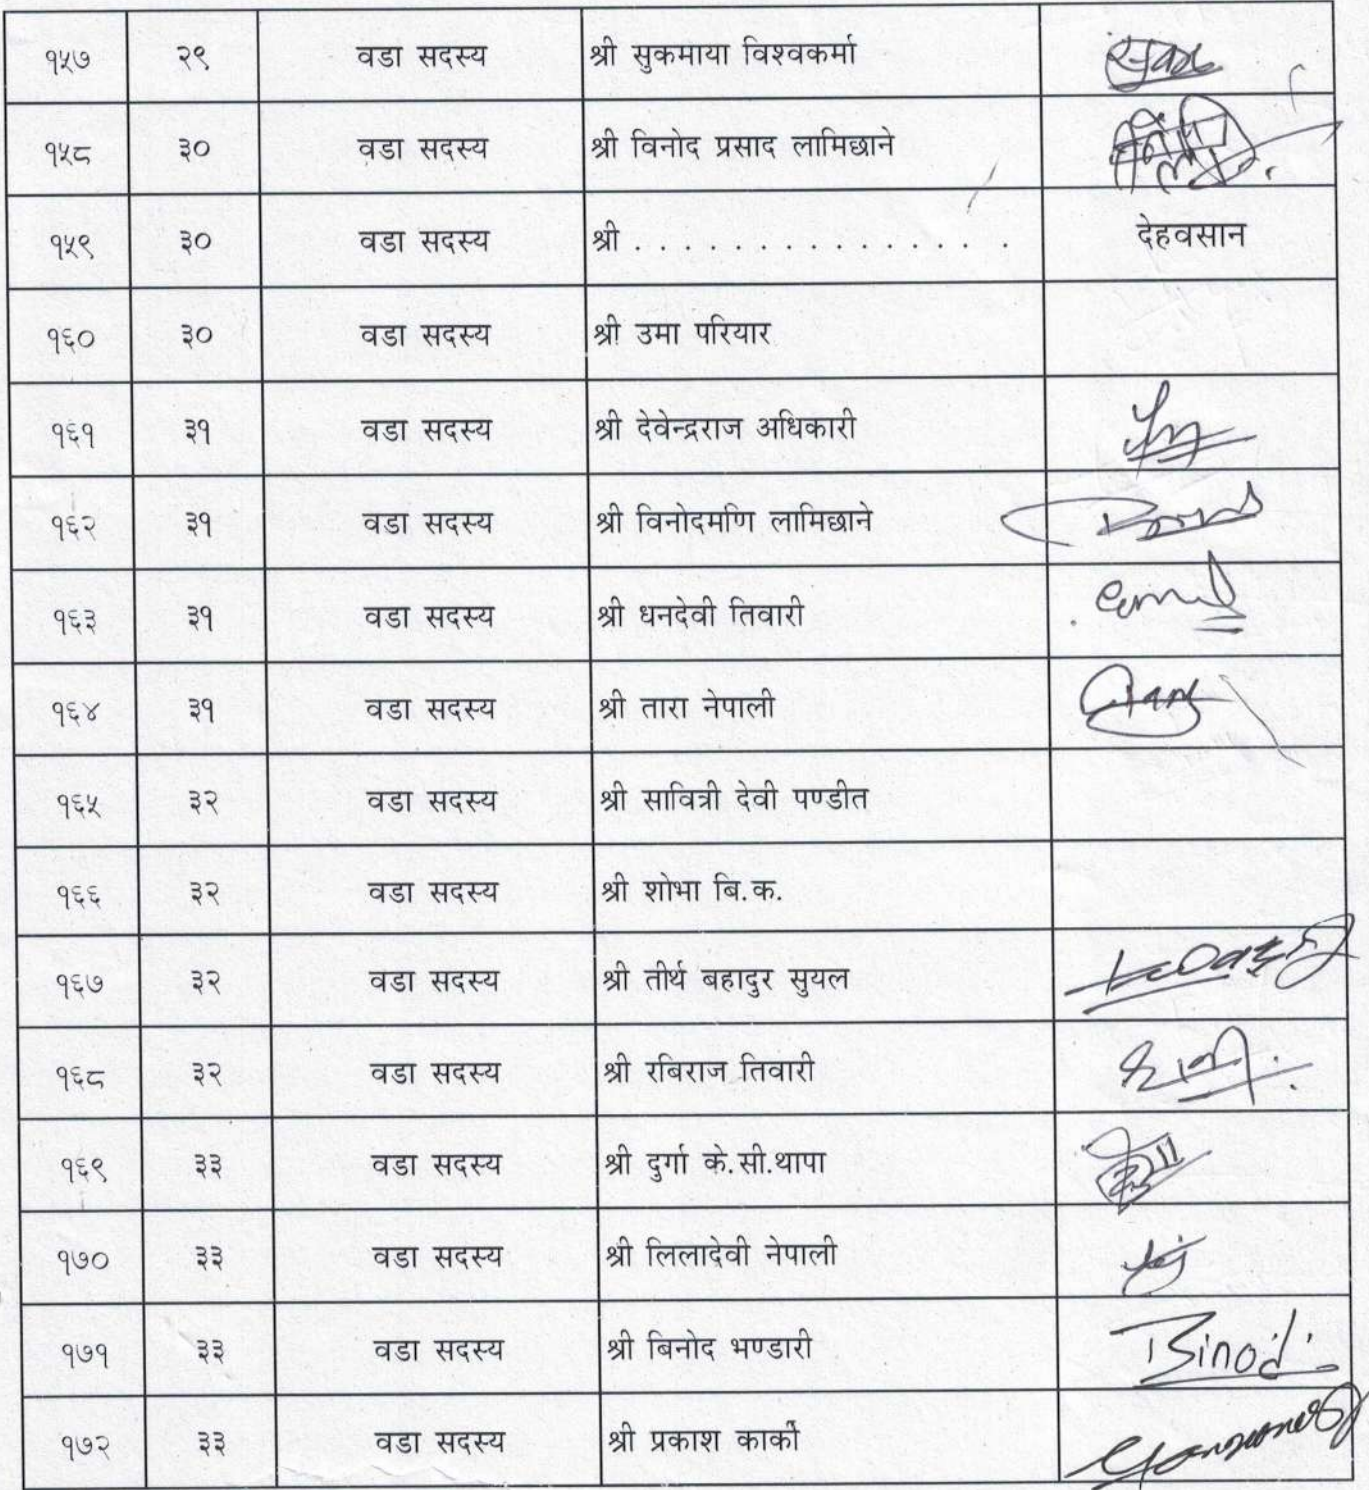 १५७ २९ वडा सदस्य श्री सुकमाया विश्वकर्मा
१५८ ३० वडा सदस्य श्री विनोद प्रसाद लामिछाने
१५९ ३० वडा सदस्य श्री . . . . . . . . . . . . . . . . देहवसान
१६० ३० वडा सदस्य श्री उमा परियार
१६१ ३१ वडा सदस्य श्री देवेन्द्रराज अधिकारी
१६२ ३१ वडा सदस्य श्री विनोदमणि लामिछाने
१६३ ३१ वडा सदस्य श्री धनदेवी तिवारी
१६४ ३१ वडा सदस्य श्री तारा नेपाली
१६५ ३२ वडा सदस्य श्री सावित्री देवी पण्डीत
१६६ ३२ वडा सदस्य श्री शोभा बि.क.
१६७ ३२ वडा सदस्य श्री तीर्थ बहादुर सुयल
१६८ ३२ वडा सदस्य श्री रबिराज तिवारी
१६९ ३३ वडा सदस्य श्री दुर्गा के.सी.थापा
१७० ३३ वडा सदस्य श्री लिलादेवी नेपाली
१७१ ३३ वडा सदस्य श्री बिनोद भण्डारी Binod
१७२ ३३ वडा सदस्य श्री प्रकाश कार्की